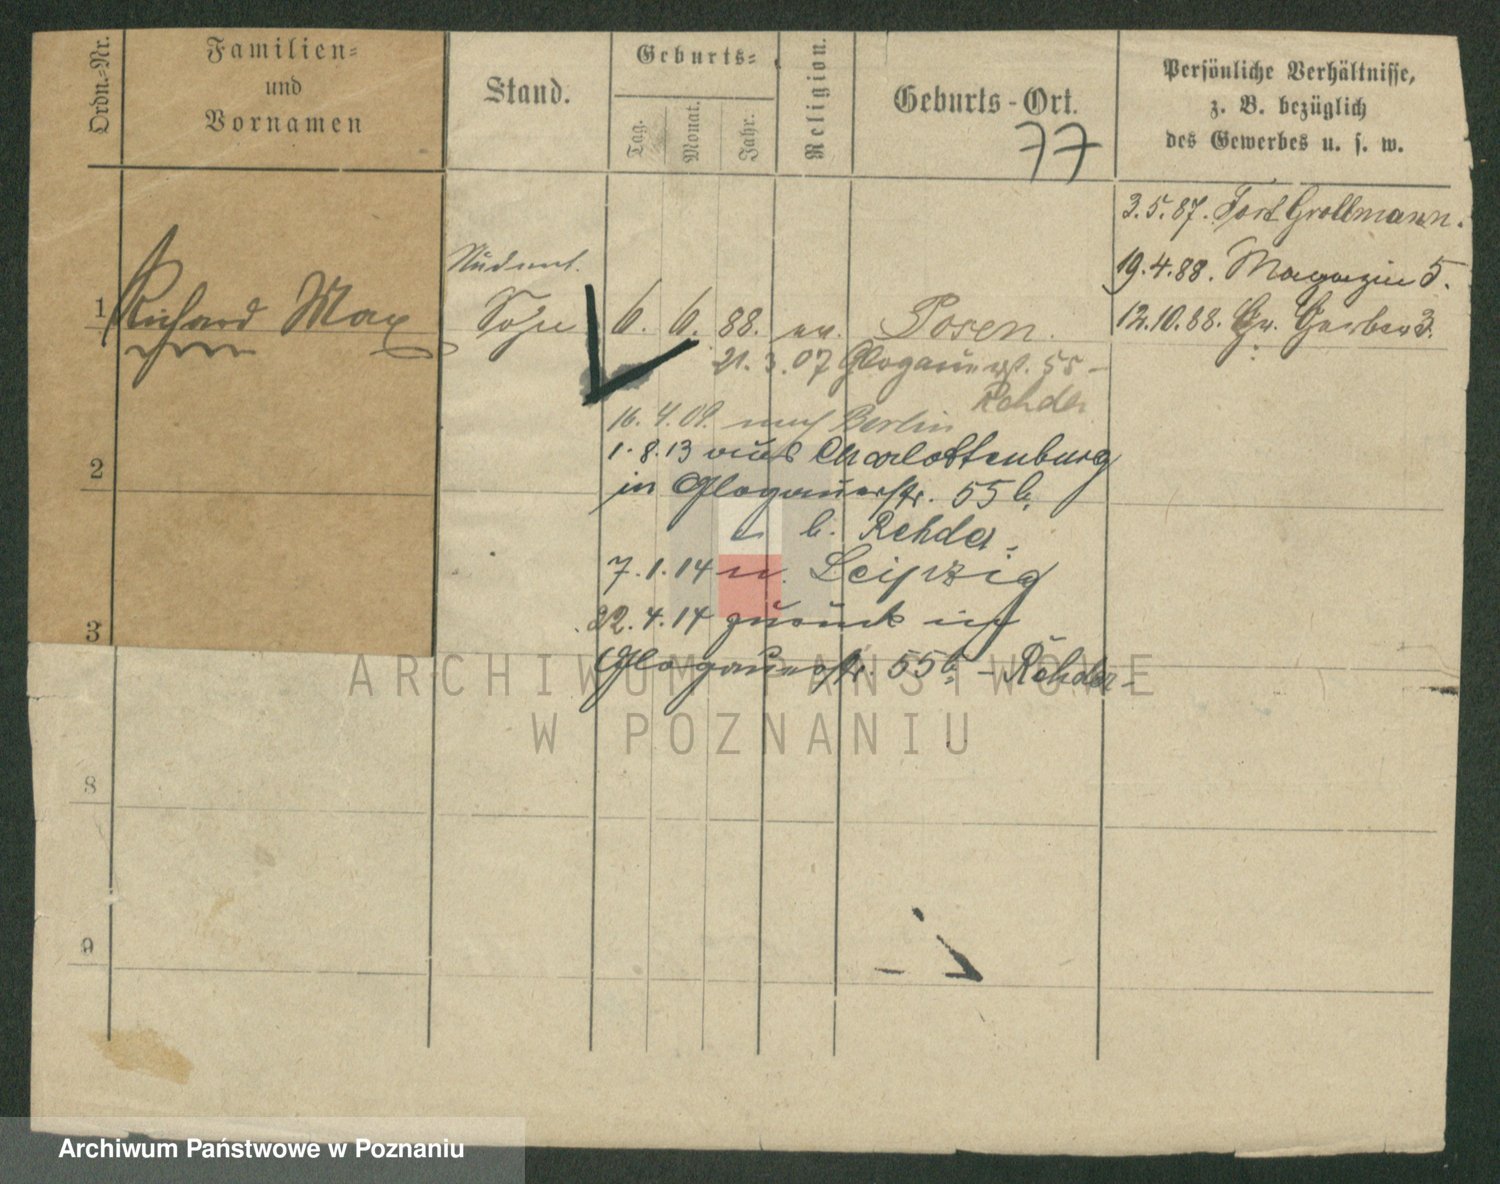 Ordn.=Nr.
Familien=
und
Vornamen
Stand.
Geburts=
Tag.
Monat.
Jahr.
Religion.
Geburts-Ort.
77
Persönliche Verhältnisse,
z. B. bezüglich
des Gewerbes u. s. w.
3.5.87. Fort Grollmann.
19.4.88. Magazin 5.
12.10.88. Gr. Gerber 3.
Student.
1 Richard Max Sohn 6. 6. 88. ev. Posen.
21.3.07 Glogauerst. 55
Rehder
16.4.09. nach Berlin
1.8.13 aus Charlottenburg
2
in Glogauerstr. 55b,
b. Rehder.
7.1.14 n. Leipzig
22.4.14 zurück in
3
Glogauerstr. 55b - Rehder -
ARCHIWUM PAŃSTWOWE
W POZNANIU
8
9
Archiwum Państwowe w Poznaniu